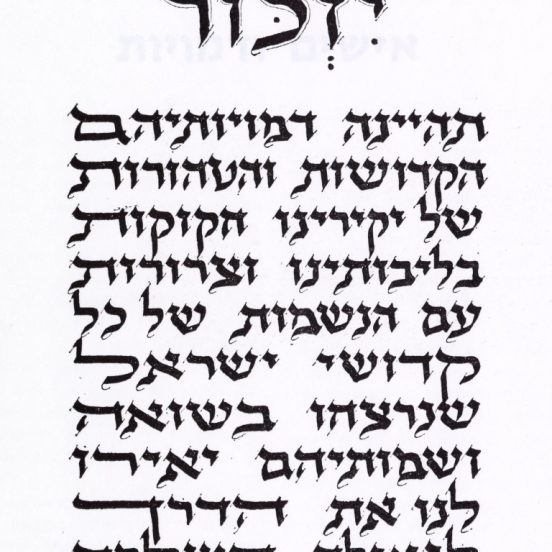 יִזְכּוֹר
תהיינה דמויותיהם
הקדושות והטהורות
של יקירינו חקוקות
בליבותינו וצרורות
עם הנשמות של כל
קדושי ישראל
שנרצחו בשואה
ושמותיהם יאירו
לנו את הדרך